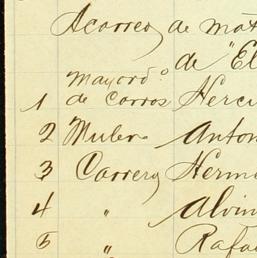 Acarreo de mat
de "El
Mayord.º
1 de Carros Hercu
2 Mulero Anton
3 Carrero Hermi
4 " Alvin
5 " Rafa